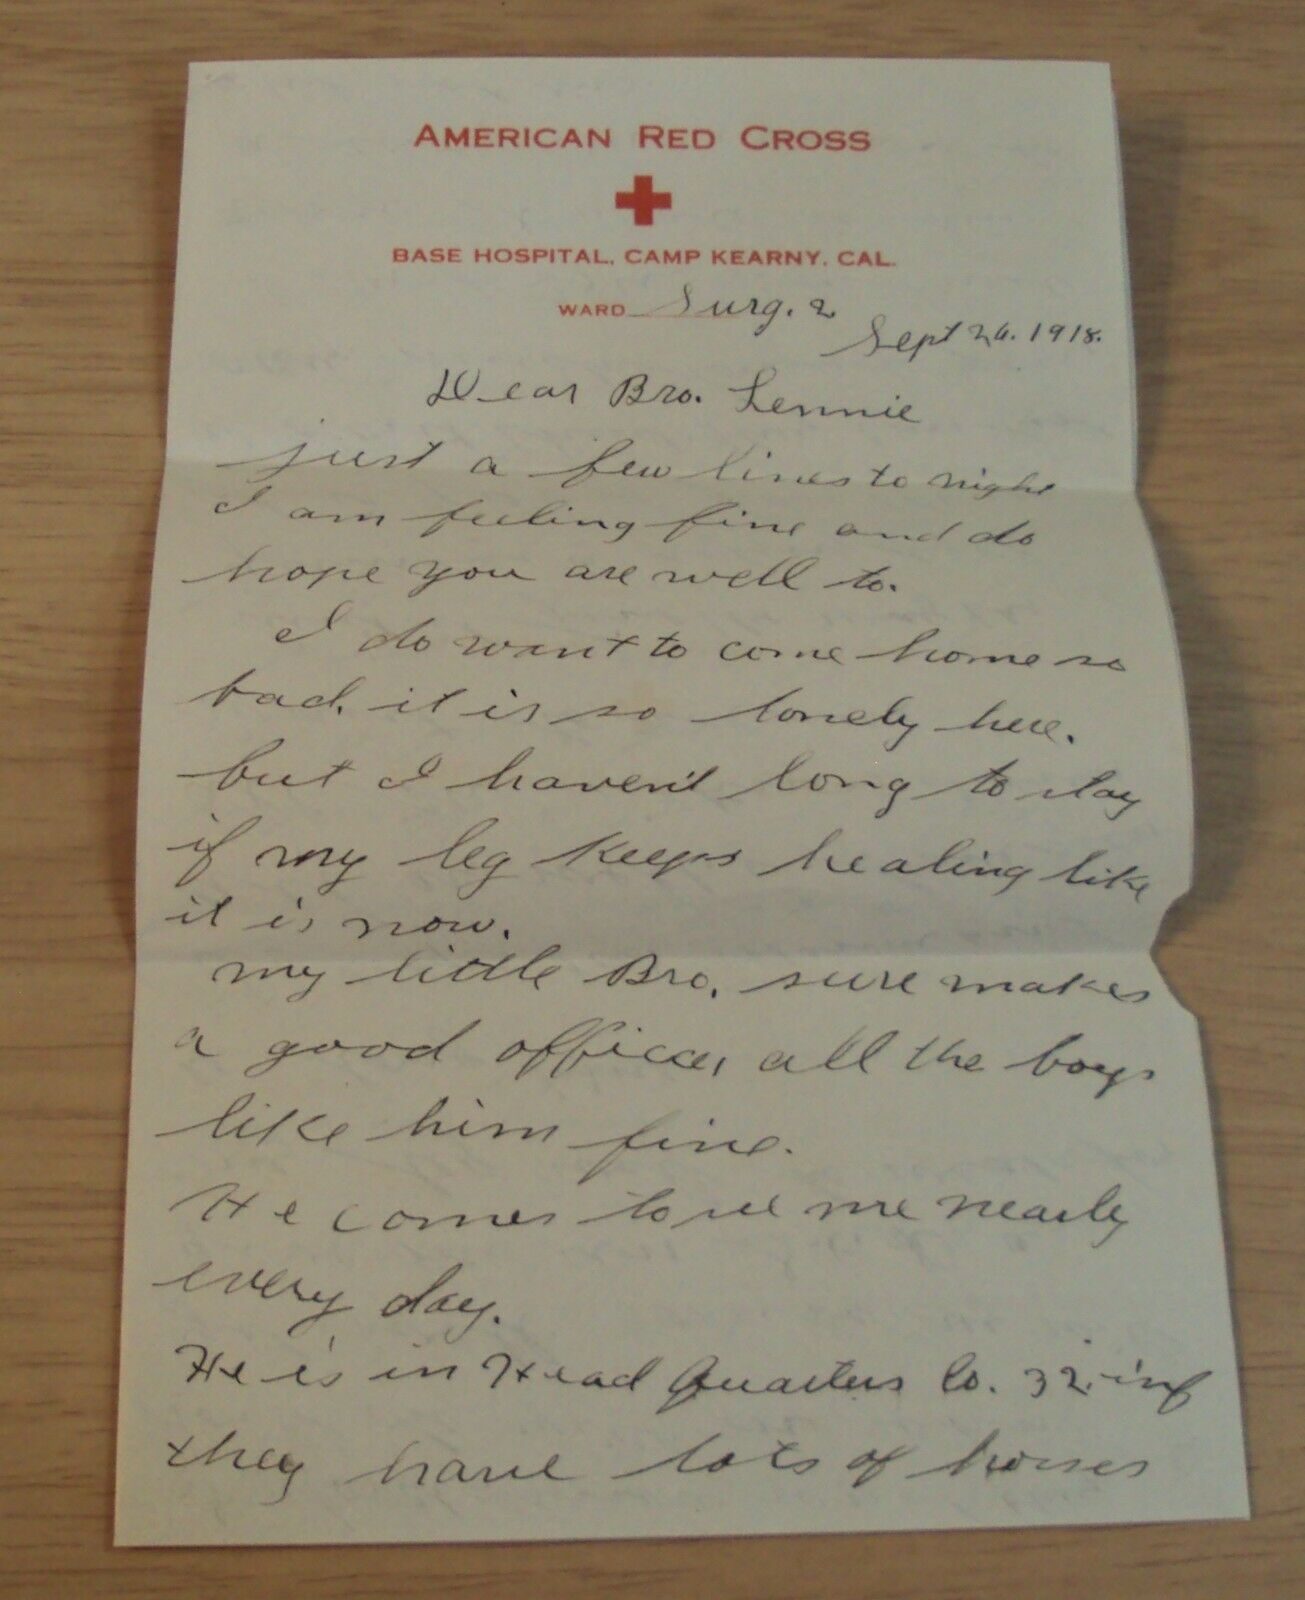 AMERICAN RED CROSS
BASE HOSPITAL, CAMP KEARNY, CAL.
WARD Surg. 2
Sept 26. 1918.
Dear Bro. Lennie
just a few lines to night
I am feeling fine and do
hope you are well to.
I do want to come home so
bad, it is so lonely here.
but I haven't long to stay
if my leg keeps healing like
it is now.
my little Bro. sure makes
a good officer, all the boys
like him fine.
He comes to see me nearly
every day.
He is in Head Quarters Co. 32 inf
they have lots of horses